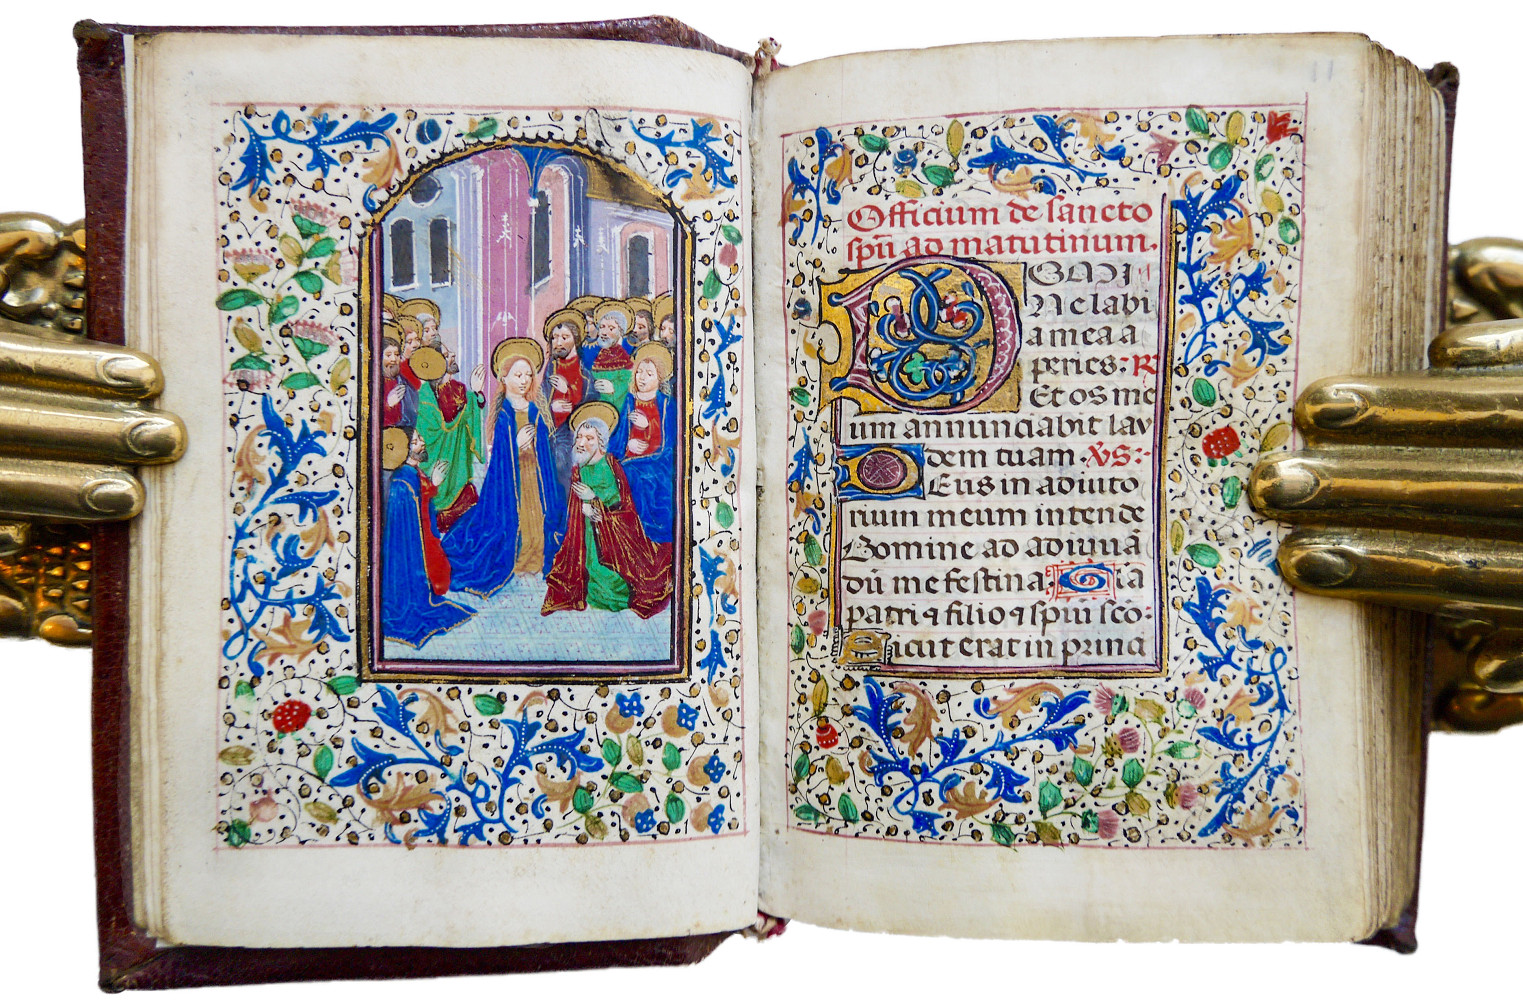 11
Officium de sancto
spū ad matutinum.
DOMI
Ne labi
a mea a
peries: R
Et os me
um annunciabit lau
dem tuam. VS:
Deus in adiuto
rium meum intende
Domine ad adiuuā
dū me festina. Gla
patri ⁊ filio ⁊ spūi sc̄o:
Sicut erat in princi